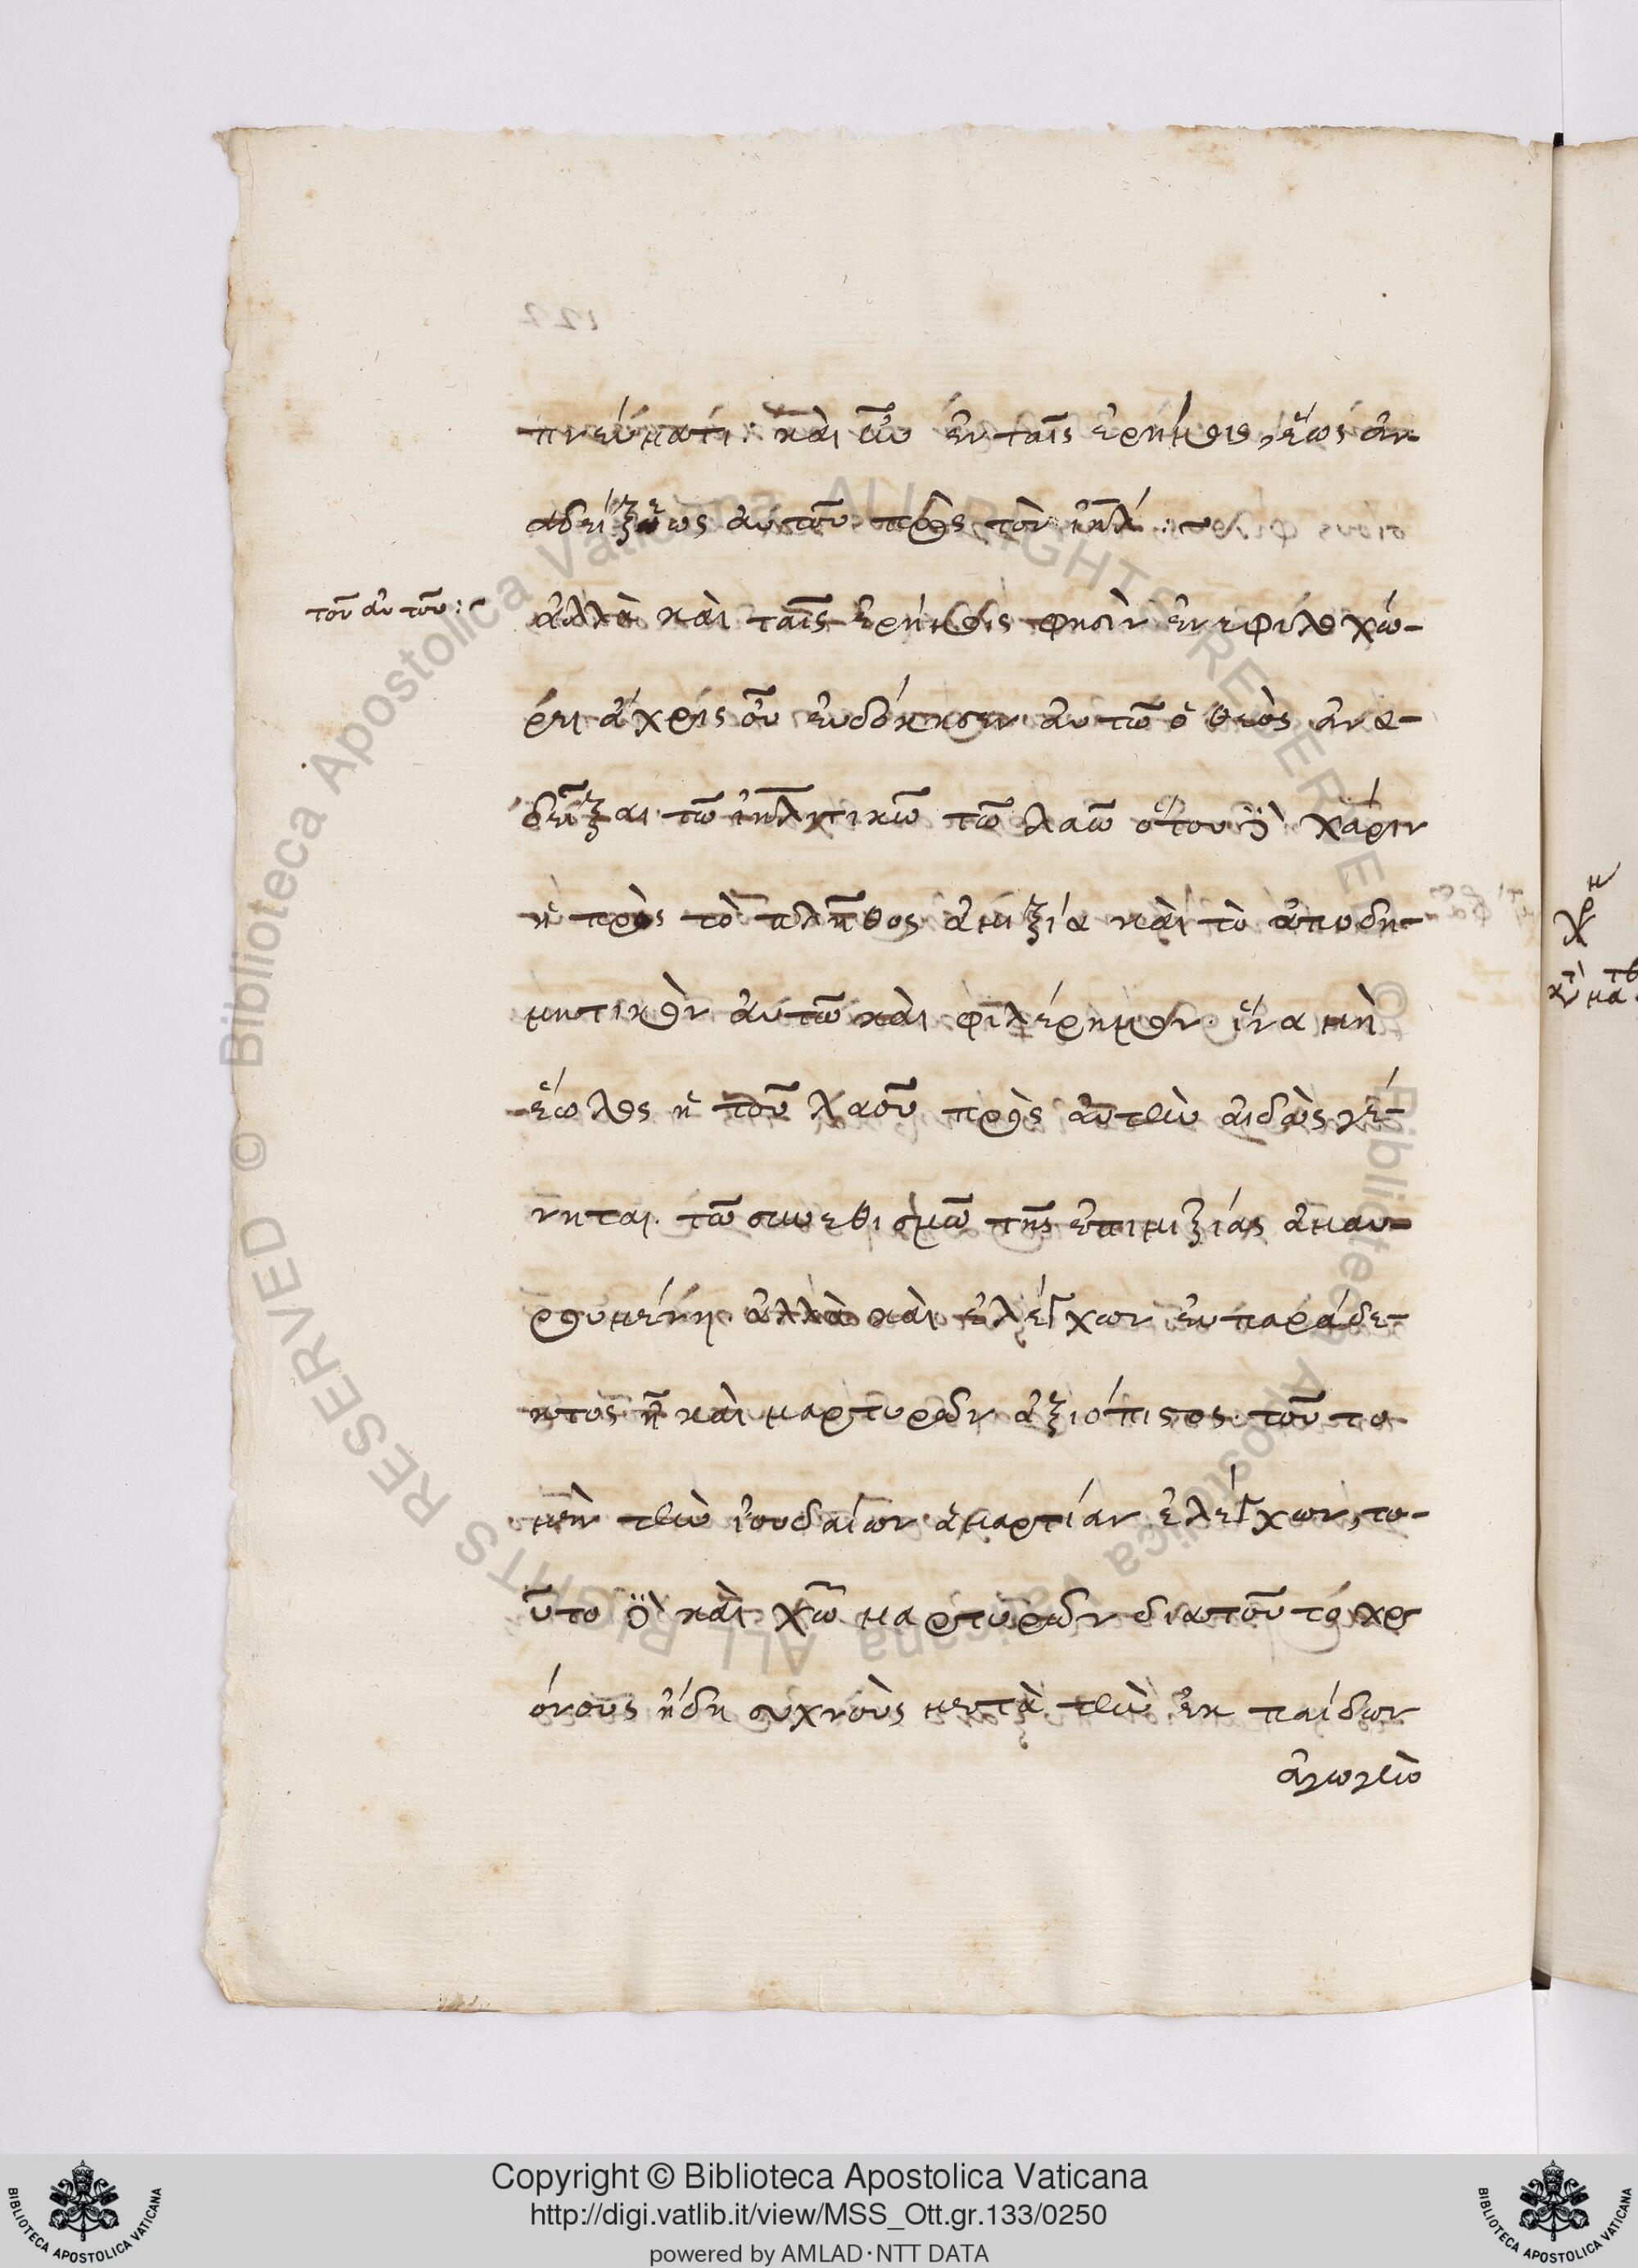 πνεύματι: καὶ ἦν ἐν ταῖς ἐρήμοις, ἕως ἀν-
αδείξεως αὐτοῦ πρὸς τὸν ἰηλ́ :~
τοῦ αὐτοῦ:~
ἀλλὰ καὶ ταῖς ἐρήμοις φησὶν ἐνεφιλοχώ-
ρει ἄχρις οὗ εὐδόκησεν αὐτῶ ὁ θεὸς ἀνα-
δεῖξαι τῶ ἰηλιτικῶ τῶ λαῶ ὅτου δὲ χάριν
ἡ πρὸς τὸ πλῆθος ἀμιξία καὶ τὸ ἀποδη-
μητικὸν αὐτῶ καὶ φιλέρημον· ἵνα μὴ
ἕωλος ἡ τοῦ λαοῦ πρὸς αὐτὴν αἰδὼς γέ-
νηται. τῶ συνεθισμῶ τῆς ἐπιμιξίας ἀμαυ-
ρουμένη. ἀλλὰ καὶ ἐλέγχων εὐπαράδε-
κτος ἦ καὶ μαρτυρῶν ἀξιόπιστος. τοῦτο
μὲν τὴν ἰουδαίων ἁμαρτίαν ἐλέγχων, το-
ῦτο δὲ καὶ χῶ μαρτυρῶν διατοῦτό χρ
όνους ἤδη συχνοὺς μετὰ τὴν ἐκ παίδων
ἀγωγὴν
122
Copyright © Biblioteca Apostolica Vaticana
http://digi.vatlib.it/view/MSS_Ott.gr.133/0250
powered by AMLAD·NTT DATA
BIBLIOTECA APOSTOLICA VATICANA
BIBLIOTECA APOSTOLICA VATICANA
© Biblioteca Apostolica Vaticana ALL RIGHTS RESERVED
© Biblioteca Apostolica Vaticana ALL RIGHTS RESERVED